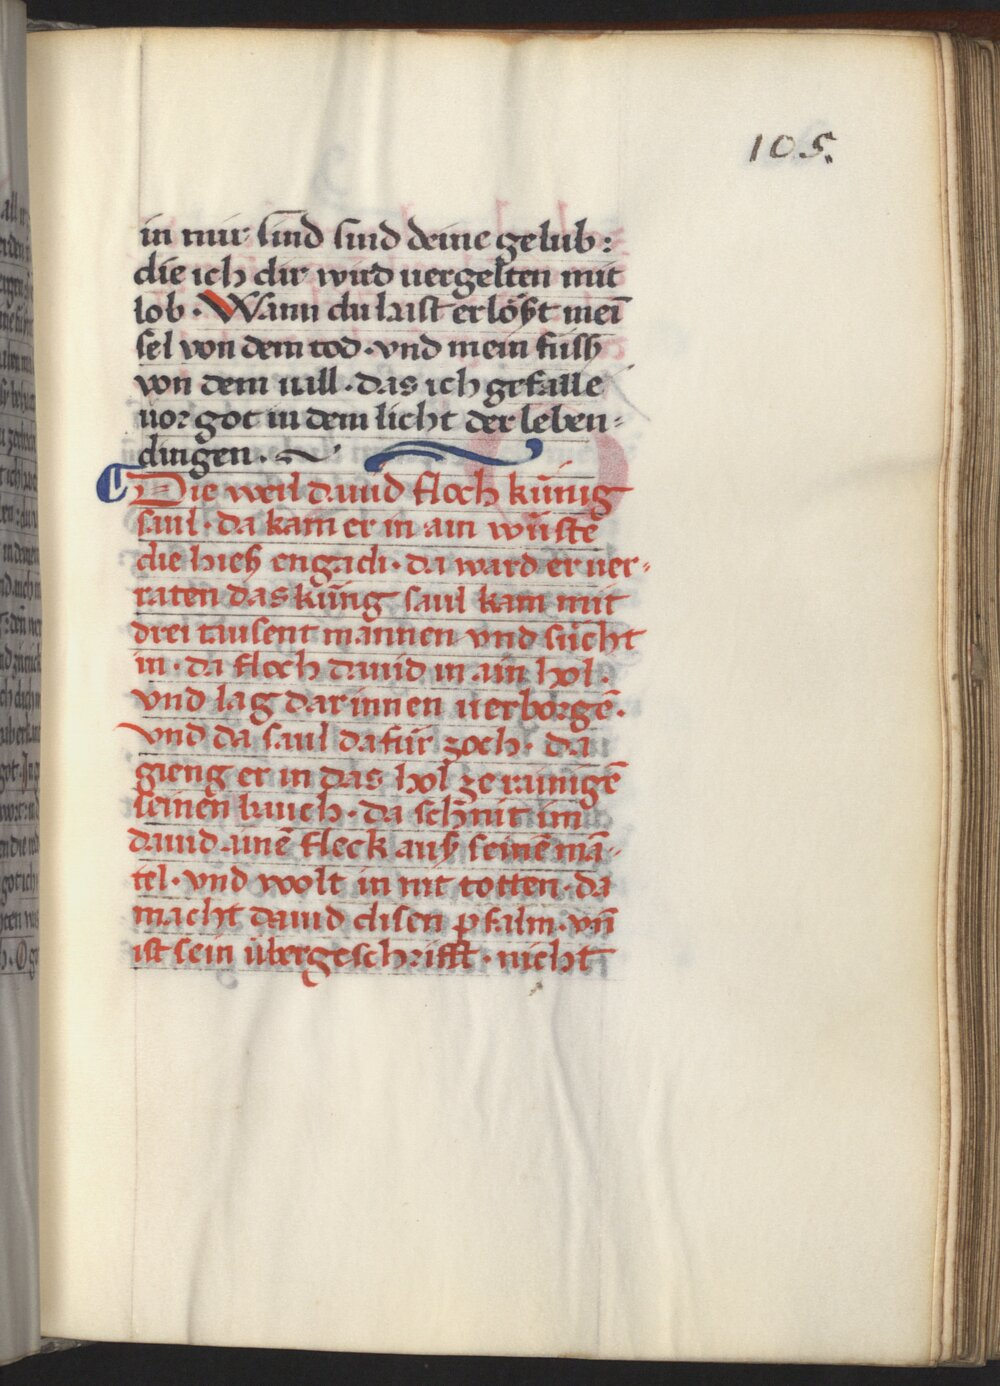 105.
in mir sind sind deine gelub:
die ich dir wird uergelten mit
lob · Wann du hast erlößt mei̅
sel von dem tod · vnd mein füsß
von dem uall · das ich gefalle
uor got in dem licht der leben-
dingen ·
Die weil dauid floch künig
saul · da kam er in ain wüste
die hieß engadi · da ward er uer-
raten das küng saul kam mit
drei tausent mannen vnd sücht
in · da floch dauid in ain hol ·
vnd lag darinnen uerborge̅ ·
vnd da saul dafür zoch · da
gieng er in das hol ze rainige̅
seinen bauch · da schnit im
dauid aine̅ fleck auß seine̅ ma̅-
tel · vnd wolt in nit totten · da
macht dauid disen psalm · vn̅
ist sein übergeschrifft · nicht